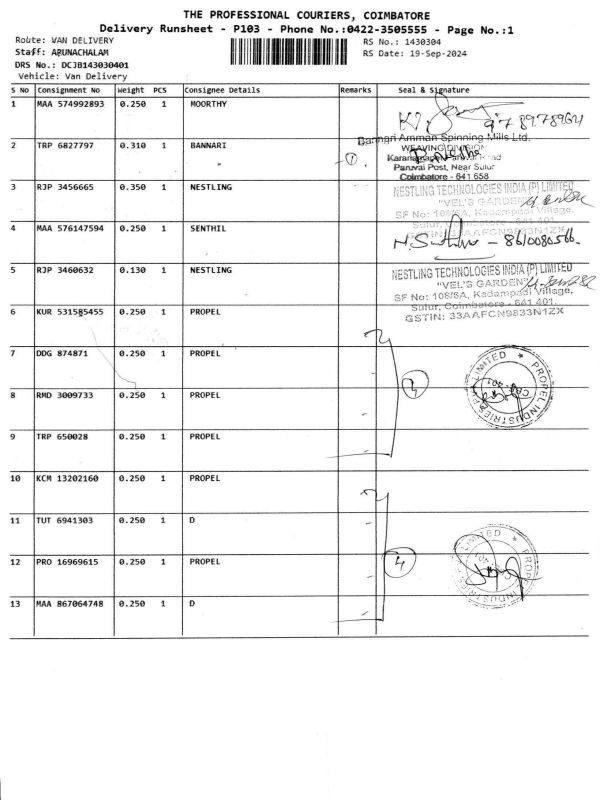 THE PROFESSIONAL COURIERS, COIMBATORE
Delivery Runsheet - P103 - Phone No.:0422-3505555 - Page No.:1
Route: VAN DELIVERY
RS No.: 1430304
Staff: ARUNACHALAM
RS Date: 19-Sep-2024
DRS No.: DCJB143030401
Vehicle: Van Delivery
S No Consignment No Weight PCS Consignee Details Remarks Seal & Signature
1 MAA 574992893 0.250 1 MOORTHY
2 TRP 6827797 0.310 1 BANNARI
Bannari Amman Spinning Mills Ltd.
WEAVING DIVISION
Paruvai Post, Near Sulur
Coimbatore - 641 658
3 RJP 3456665 0.350 1 NESTLING
NESTLING TECHNOLOGIES INDIA (P) LIMITED
"VEL'S GARDEN"
SF No: 108/8A, Kadampadi Village,
Sulur, Coimbatore - 641 401.
GSTIN: 33AAFCN9833N1ZX
4 MAA 576147594 0.250 1 SENTHIL
N. Senthil - 8610080566.
5 RJP 3460632 0.130 1 NESTLING
NESTLING TECHNOLOGIES INDIA (P) LIMITED
"VEL'S GARDEN"
SF No: 108/8A, Kadampadi Village,
Sulur, Coimbatore - 641 401.
GSTIN: 33AAFCN9833N1ZX
6 KUR 531585455 0.250 1 PROPEL
7 DDG 874871 0.250 1 PROPEL
PROPEL INDUSTRIES LIMITED
8 RMD 3009733 0.250 1 PROPEL
9 TRP 650028 0.250 1 PROPEL
10 KCM 13202160 0.250 1 PROPEL
11 TUT 6941303 0.250 1 D
12 PRO 16969615 0.250 1 PROPEL
4
PROPEL INDUSTRIES LIMITED
13 MAA 867064748 0.250 1 D